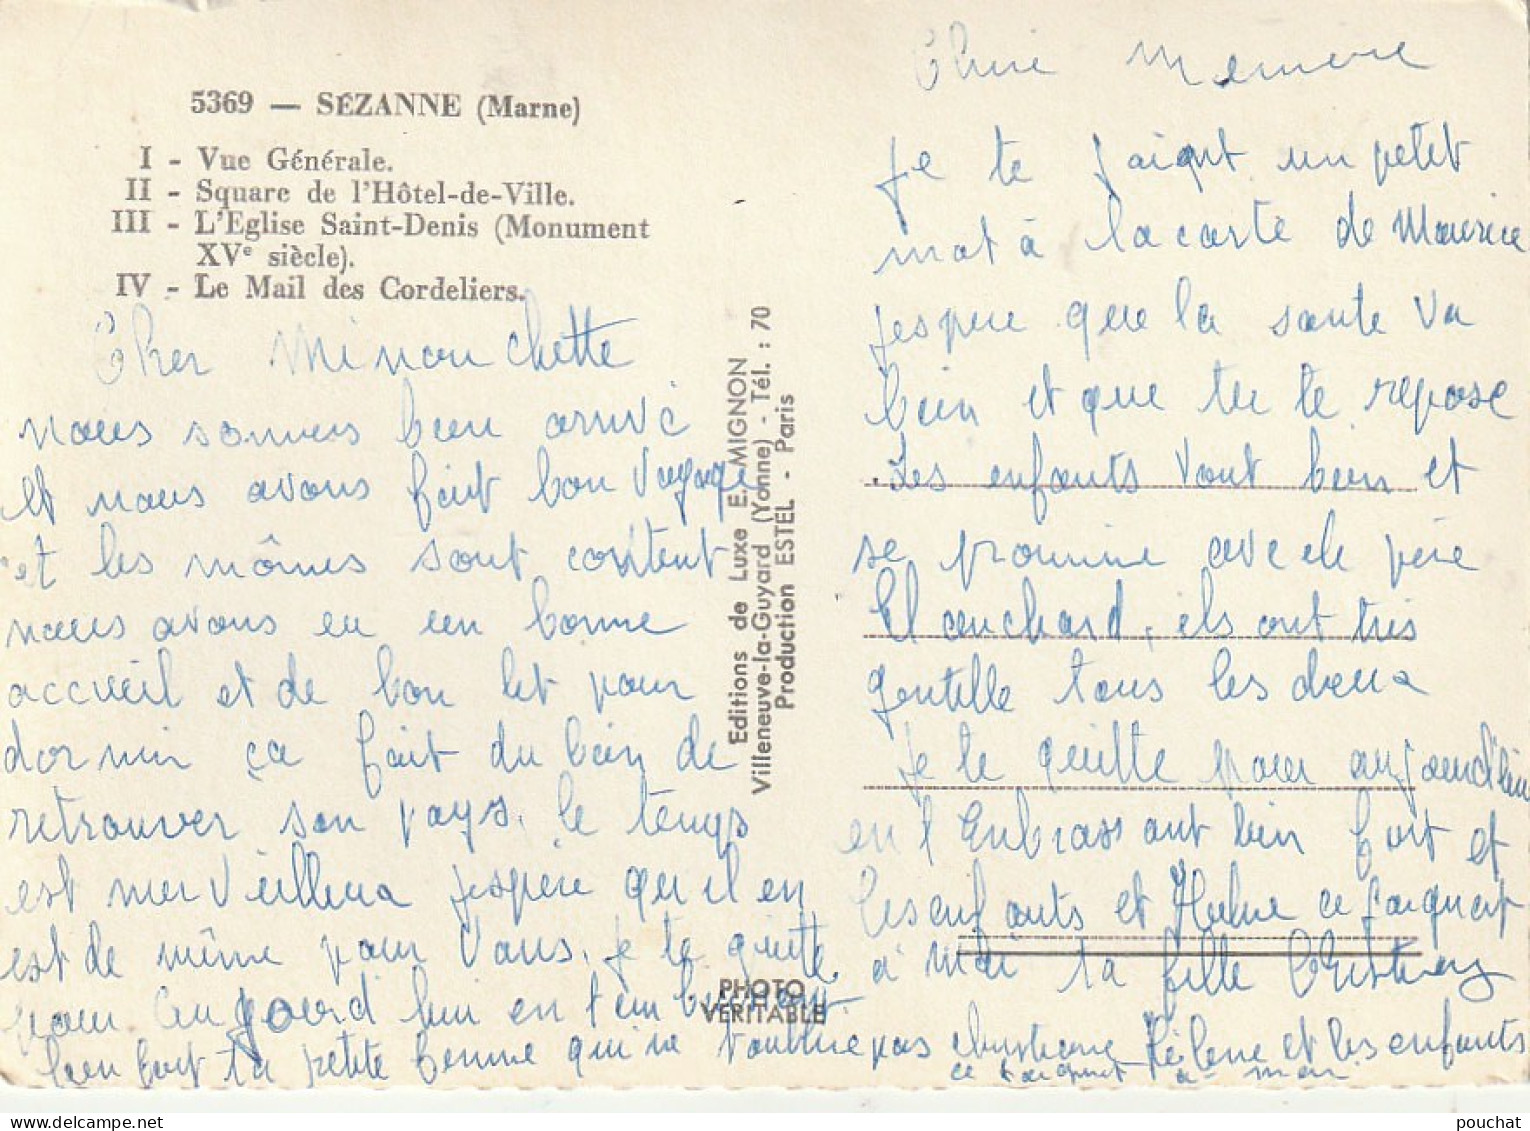 5369 — SÉZANNE (Marne)
I - Vue Générale.
II - Square de l'Hôtel-de-Ville.
III - L'Eglise Saint-Denis (Monument
XVe siècle).
IV - Le Mail des Cordeliers.
Cher Minouchette
nous sommes bien arrivé
et nous avons fait bon voyage
et les mômes sont content
nous avons eu un bonne
accueil et de bon lit pour
dormir ça fait du bien de
retrouver son pays. le temps
est merveilleux j'espère qu il en
est de même pour vous. je te quitte
pour aujourd hui en t'embrassant
bien fort ta petite femme qui ne t'oublie pas
Editions de Luxe E. MIGNON
Villeneuve-la-Guyard (Yonne) - Tél. : 70
Production ESTEL - Paris
PHOTO
VÉRITABLE
Chère Memere
Je te joignt un petit
mot à la carte de Maurice
j'espère que la sante va
bien et que tu te repose
Les enfants vont bien et
se promène avec le père
Blanchard, ils sont très
gentille tous les deux
je te quitte pour aujourd'hui
en t Enbrassant bien fort et
les enfants et Helene ce joignent
à moi ta fille Christiane
christiane Hélène et les enfants
ce joignent à moi
pouchat